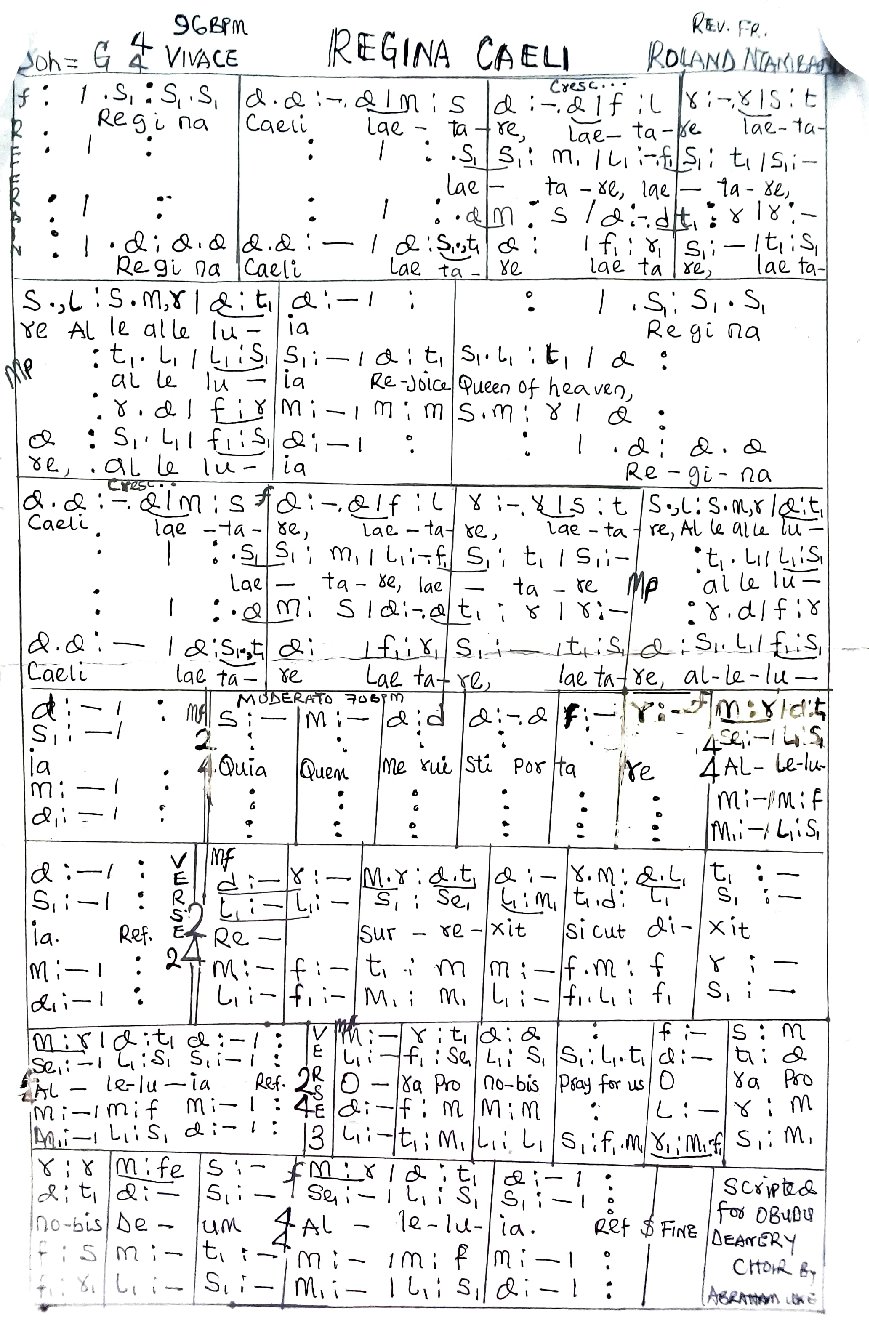 96BPM
Doh = G 4/4 VIVACE REGINA CAELI REV. FR. ROLAND NTAKIBAN
Cresc...
f : | .S₁ : S₁.S₁ | d.d :-. d | m : s | d :-. d | f : l | r :-. r | s : t
Regina Caeli lae - ta - re, lae - ta - re lae-ta-
REFRAIN
: | : | : | : .S₁ | S₁ : m₁ | L₁ :-.f₁ | S₁ : t₁ | S₁ :-
lae - ta - re, lae - ta - re,
: | : | : | : .d | m : s | d :-.d | t₁ : r | r :-
: | .d : d.d | d.d : - | d : S₁.,t₁ | d : | f₁ : r₁ | S₁ : - | t₁ : S₁
Regina Caeli Lae ta - re lae ta re, lae ta-
S.,L : S.m,r | d : t₁ | d :- | : | : | .S₁ : S₁.S₁
re Al le alle lu - ia Regina
mp : t₁.L₁ | L₁ : S₁ | S₁ :- | d : t₁ | S₁.L₁ : t₁ | d :
al le lu - ia Re-joice Queen of heaven,
: r.d | f : r | m :- | m : m | S.m : r | d :
d : S₁.L₁ | f₁ : S₁ | d :- | : | : | .d : d.d
re, .al le lu - ia Re-gi-na
Cresc...
d.d :-. d | m : s f | d :-. d | f : l | r :-. r | s : t | S.,L : S.m,r | d : t₁
Caeli lae - ta - re, lae - ta - re, lae - ta - re, Al le alle lu -
: | : .S₁ | S₁ : m₁ | L₁ :-.f₁ | S₁ : t₁ | S₁ :- | : t₁.L₁ | L₁ : S₁
lae - ta - re, lae - ta - re mp al le lu -
: | : .d | m : s | d :-.d | t₁ : r | r :- | : r.d | f : r
d.d : - | d : S₁.,t₁ | d : | f₁ : r₁ | S₁ : - | t₁ : S₁ | d : S₁.L₁ | f₁ : S₁
Caeli lae ta - re Lae ta - re, lae ta - re, al-le-lu -
MODERATO 70BPM
d :- | : mf S :- | m :- | d : d | d :-.d | f :- | r :- f | m : r | d : t₁
S₁ :- | : 2/4 : | : | : | : | : | : 4/4 Se₁ :- | L₁ : S₁
ia Quia Quem Me rui Sti Por ta re AL - Le-lu-
m :- | : | : | : | : | : | : | : | m :- | m : f
d₁ :- | : | : | : | : | : | : | : | m₁ :- | L₁ : S₁
d :- | : VERSE 2 mf d :- | r :- | m.r : d.t₁ | d :- | r.m : d.L₁ | t₁ : -
S₁ :- | : 2/4 t₁ :- | L₁ :- | S₁ : Se₁ | L₁ : m₁ | t₁.d : t₁ | S₁ : -
ia. Ref. Re - sur - re - xit sicut di - xit
m :- | : m :- | f :- | t₁ : m | m :- | f.m : f | r : -
d₁ :- | : L₁ :- | f₁ :- | m₁ : m₁ | L₁ :- | f₁.L₁ : f₁ | S₁ : -
m : r | d : t₁ d :- | : VERSE 3 mf m :- | r : t₁ | d : d | : | f :- | s : m
Se₁ :- | L₁ : S₁ S₁ :- | : L₁ :- | f₁ : Se₁ | L₁ : S₁ | S₁ : L₁.t₁ | d :- | t₁ : d
AL - le-lu-ia Ref. 2/4 O - ra Pro no-bis Pray for us O ra Pro
m :- | m : f m :- | : d :- | f : m | m : m | : | L :- | r : m
m₁ :- | L₁ : S₁ d :- | : L₁ :- | t₁ : m₁ | L₁ : L₁ | S₁ : f₁.m₁ | r₁ : m₁.f₁ | S₁ : m₁
r : r | m : fe | S :- f | m : r | d : t₁ | d :- | :
d : t₁ | d :- | S₁ :- | Se₁ :- | L₁ : S₁ | S₁ :- | :
no-bis De - um 4/4 AL - le-lu- ia. Ref $ FINE
f : S | m :- | t₁ :- | m :- | m : f | m :- | :
f₁ : r₁ | L₁ :- | S₁ :- | m₁ :- | L₁ : S₁ | d :- | :
Scripted
for OBUDU
DEANERY
CHOIR By
ABRAHAM